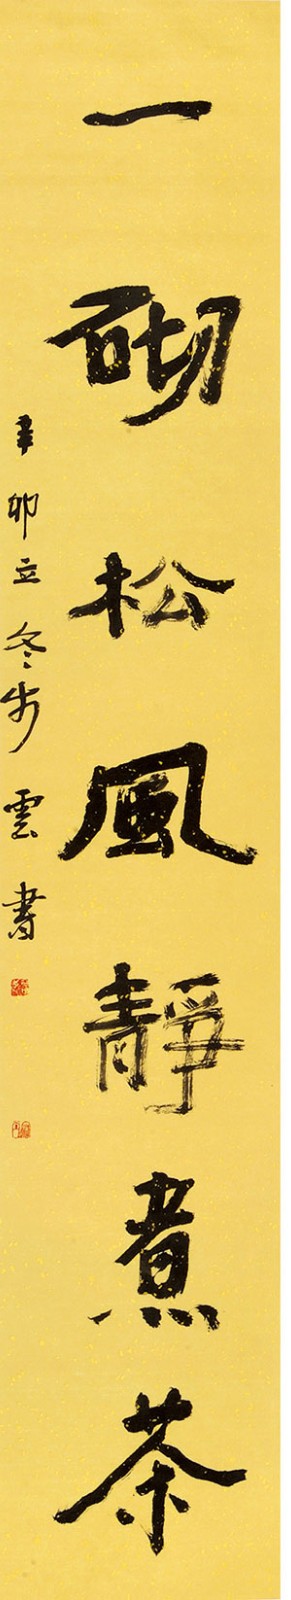 一砌松風靜煮茶
辛卯立冬步雲書